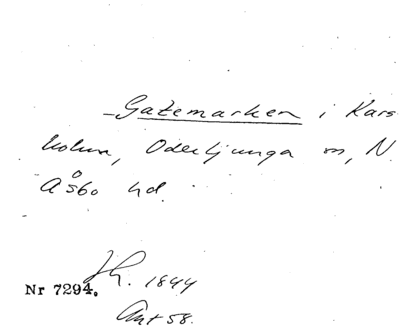 Gatemarken i Kars
holm, Oderljunga sn, N.
Åsbo hd.
Nr 7294. Jh. 1844
Ant 58.